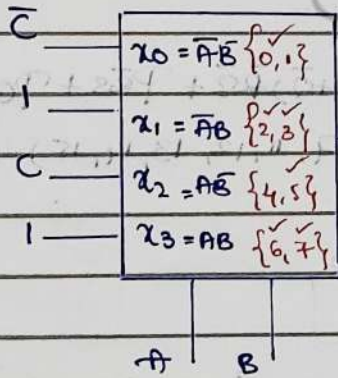 C̅
x0 = A̅ B̅ {0, 1}
1
x1 = A̅B {2, 3}
C
x2 = AB̅ {4, 5}
1
x3 = AB {6, 7}
A B